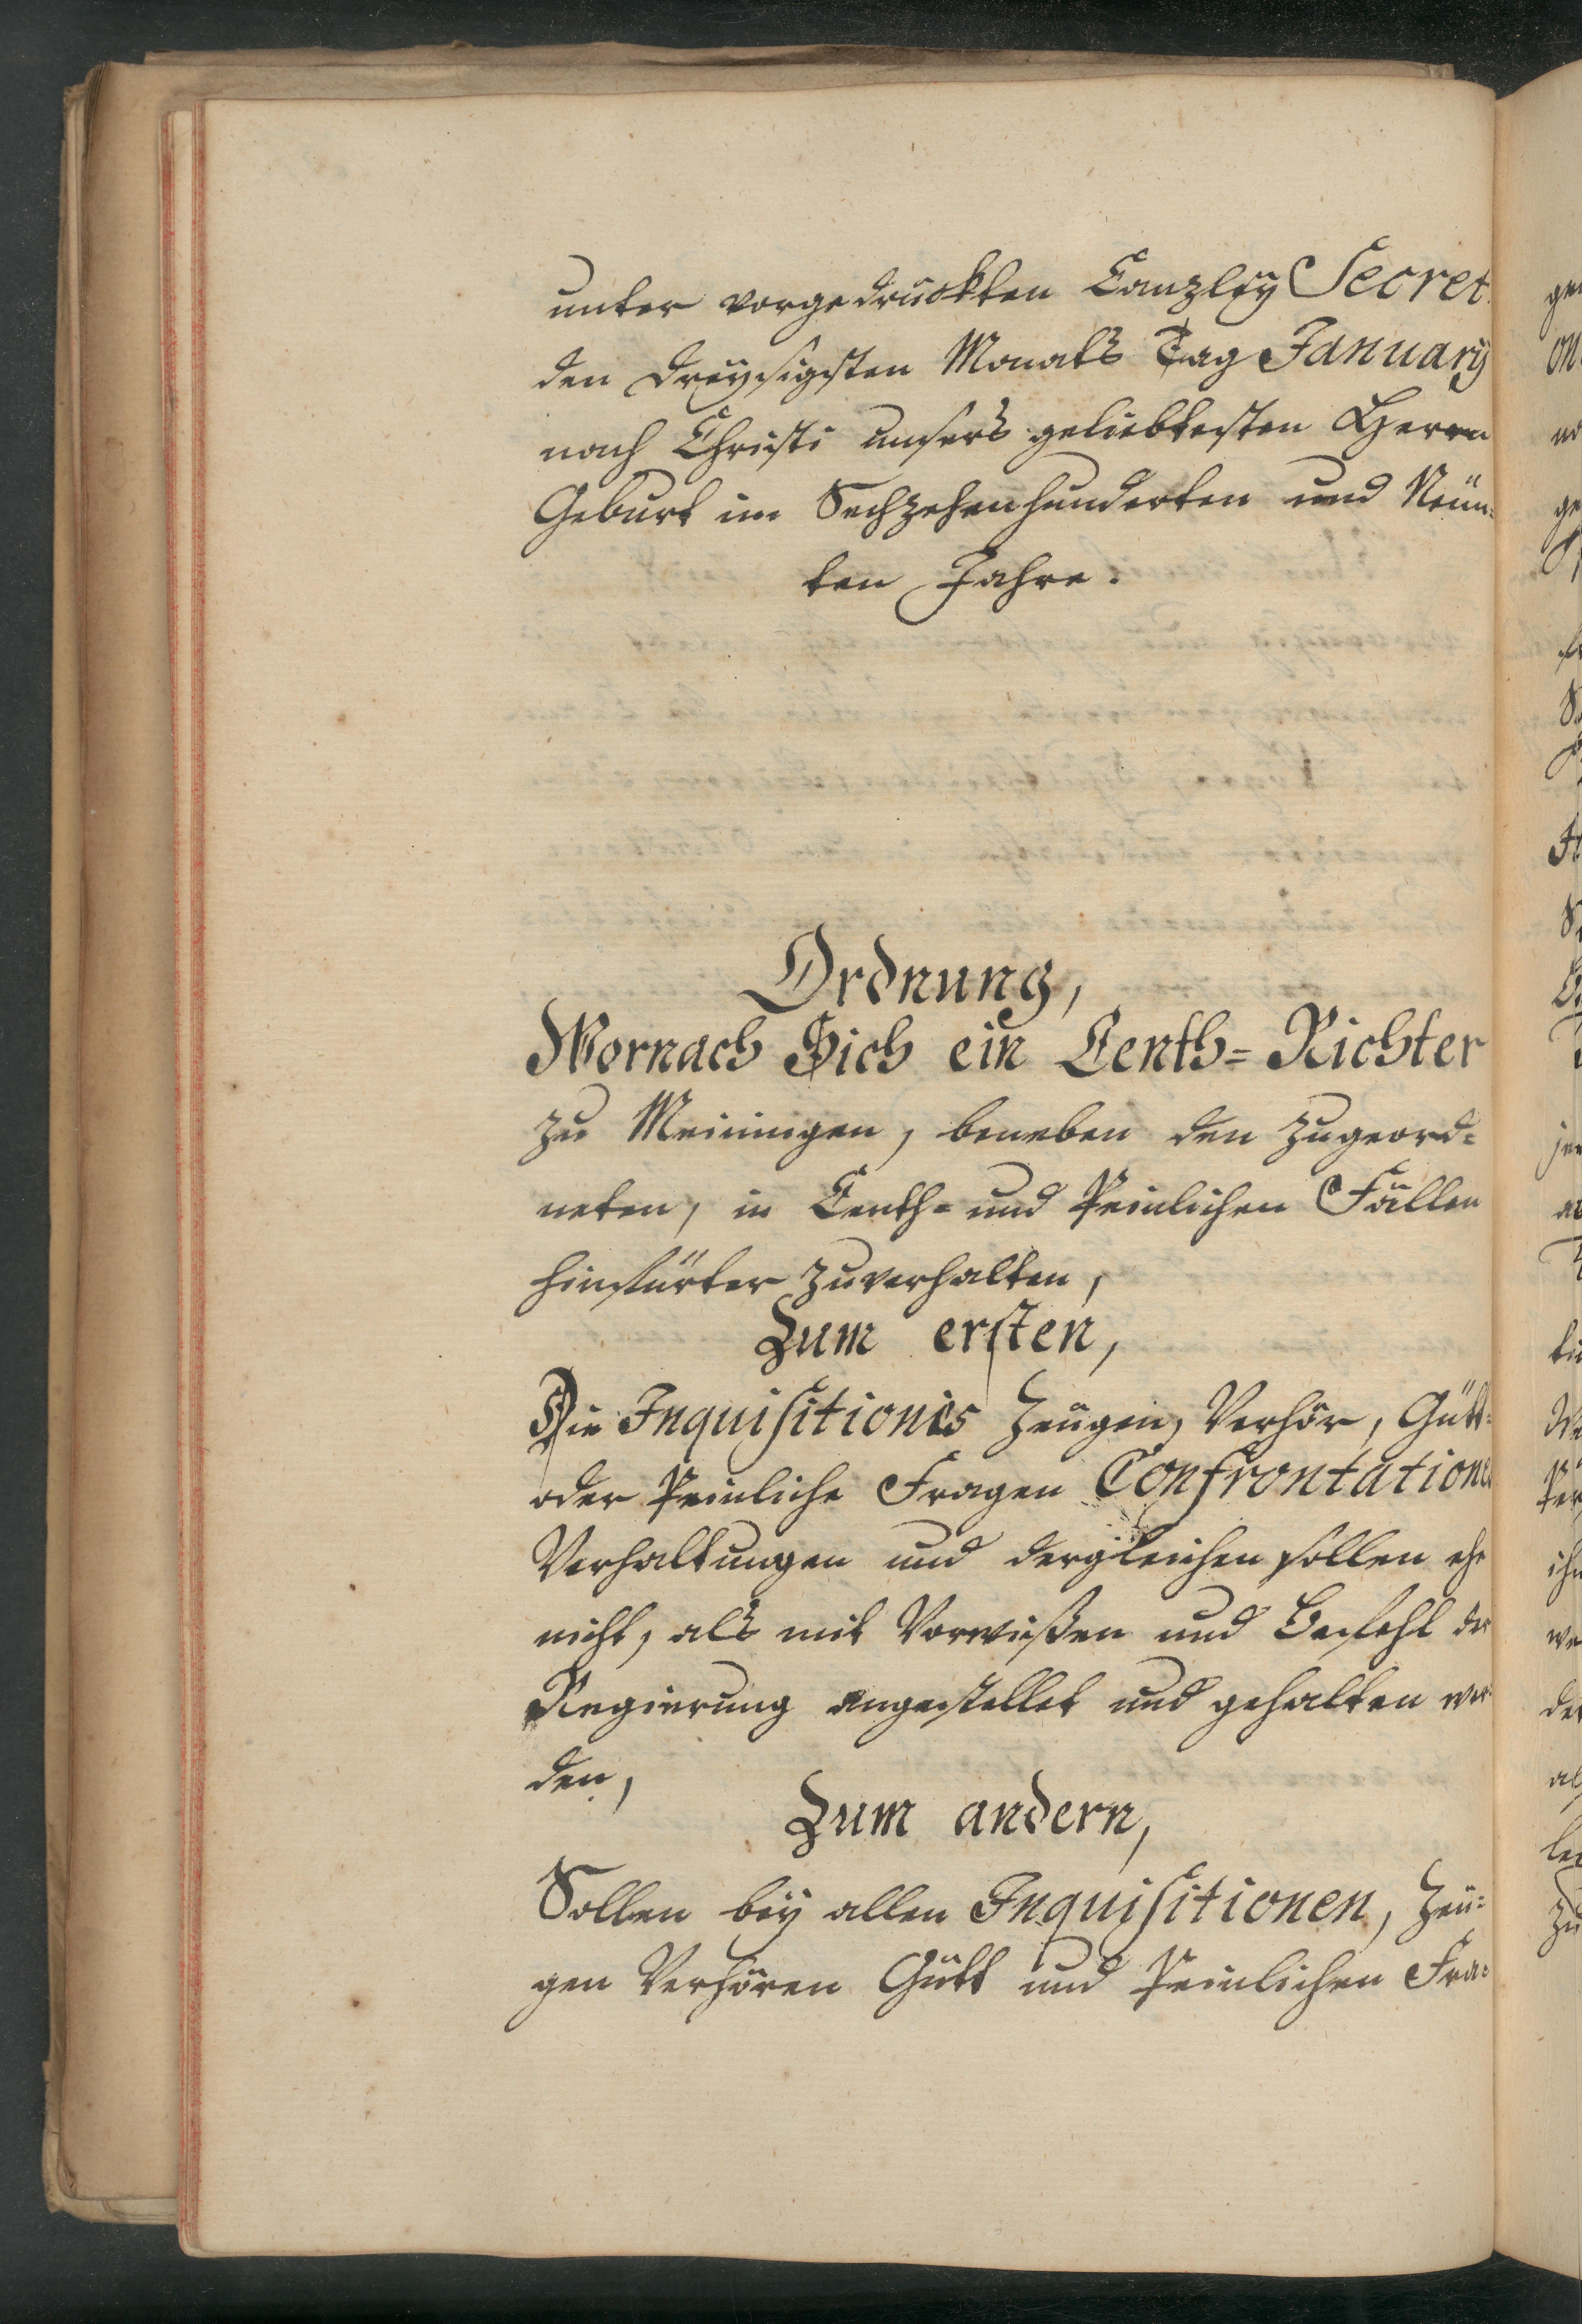 unter vorgedruckten Canzley Secret.
den dreysigsten Monats Tag January
nach Christi unsers geliebtesten Herrn
Geburt im Sechzehenhunderten und Neün-
ten Jahre.
Ordnung,
Wornach Sich ein Centh-Richter
zu Meiningen, beneben den zugeord-
neten, in Centh- und Peinlichen Fällen
hinfürter zuverhalten,
Zum ersten,
Die Inquisitiones Zeugen, Verhör, Gütt-
oder Peinliche Fragen Confrontationes
Verhaltungen und dergleichen sollen ehe
nicht, als mit Vorwißen und Befehl der
Regierung angestellet und gehalten wer-
den,
Zum andern,
Sollen bey allen Inquisitionen, Zeü-
gen Verhören Gütt und Peinlichen Fra-